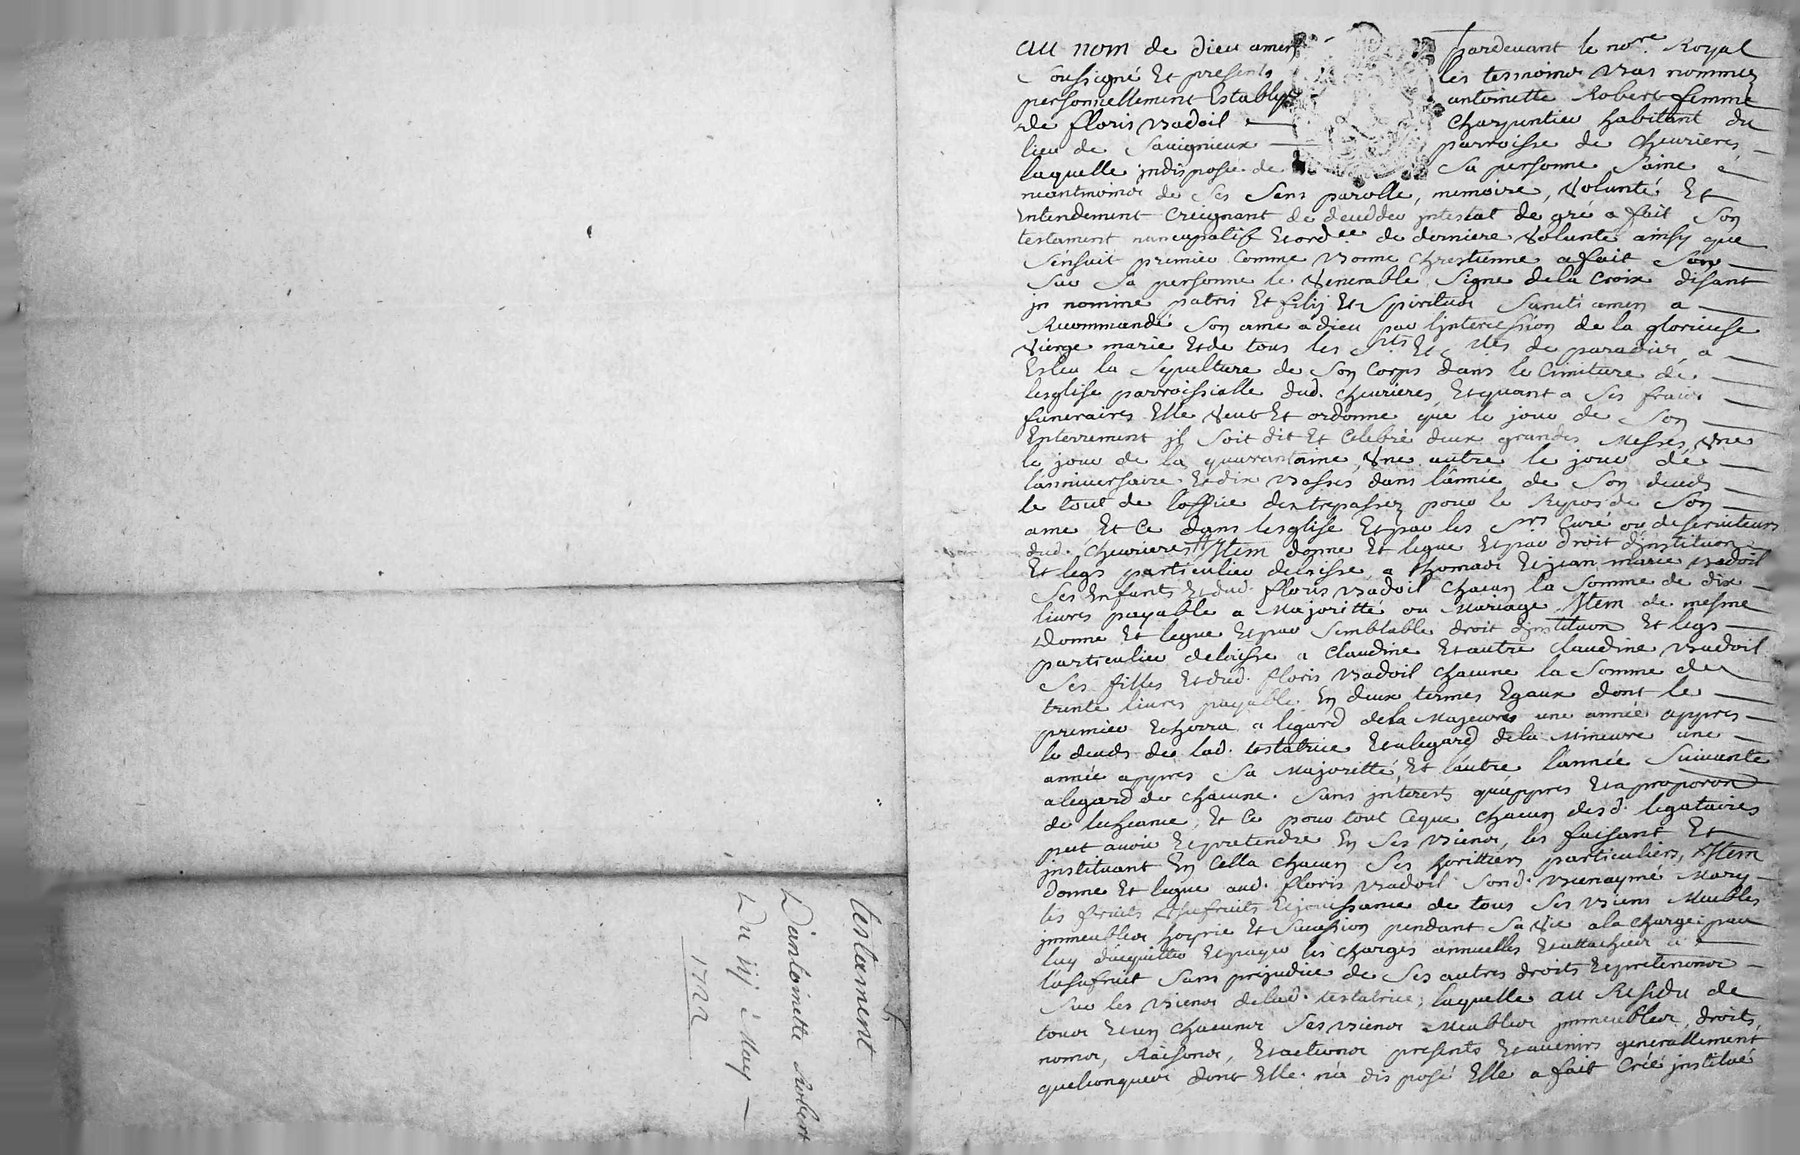 au nom de dieu amen pardevant le no.re Royal
Soussigné Et presents les tesmoins bas nommez
personnellement Establye antoinette Robert femme
de floris badoil charpentier habitant du
lieu de Savignieux parroisse de chevrieres
laquelle indisposée de sa personne Saine
neantmoins de Ses Sens parolle, memoire, volunté Et
Entendement Creignant de decedder intestat de gré a fait Son
testament nuncupatif Et ord.ce de derniere volunté ainsy que
Sensuit premier Comme bonne chrestienne a fait
Sur Sa personne le venerable Signe de la Croix disant
in nomine patris Et filij Et Spiritus Sancti amen a
Recommandé Son ame a dieu par lintercession de la glorieuse
vierge marie Et de tous les S.ts Et S.tes de paradis, a
Esleu la Sepulture de Son Corps dans le Cimitiere de
lesglise parroissialle dud. chevrieres, Et quant a Ses frais
funeraires Elle veut Et ordonne que le jour de Son
Enterrement il Soit dit Et Celebré deux grandes Messes, vne
le jour de la quarantaine, vne autre le jour de
lanniversaire. Et dix basses dans lannée de Son deceds
le tout de loffice des trepassez pour le Repos de Son
ame Et Ce dans lesglise Et par les S.rs Curé ou deserviteurs
dud. chevrieres Item donne Et legue Et par droit dinstituon
Et legs particulier delaisse a thomas Et jean marie badoil
Ses Enfants Et dud. floris badoil chacun la Somme de dix
livres payable a Majoritté ou Mariage, Item de mesme
donne Et legue Et par Semblable droit dinstituon Et legs
particulier delaisse a Claudine Et autre Claudine badoil
Ses filles Et dud. floris badoil chacune la Somme de
trente livres payable En deux termes Egaux dont le
premier Echerra a legard de la Majeure une année appres
le deceds de lad. testatrice Et a legard de la Mineure une
année appres Sa Majoritté, Et lautre lannée Suivante
a legard de chacune. Sans interests quappres Et a proporon
de lecheance, Et Ce pour tout Ceque chacun desd. legataires
peut avoir Et pretendre En Ses biens, les faisant Et
instituant En Cella chacun Ses heritiers particuliers, Item
donne Et legue aud. floris badoil Sond. bienaymé Mary
les fruits vsufruits Et jouissance de tous Ses biens Meubles
immeubles hoyrie Et Succession pendant Sa vie a la charge par
luy dacquitter Et payer les charges annuelles Et attachées a
lusufruit Sans prejudice de Ses autres droits Et pretentions
Sur les biens delad. testatrice; laquelle au Residu de
tous Et un chacuns Ses biens Meubles immeubles, droits,
noms, Raisons, Et actions presents Et avenirs generallement
quelconques, dont Elle na disposé Elle a fait Créé institué
testament
Dantoinette Robert
Du iij May
1722